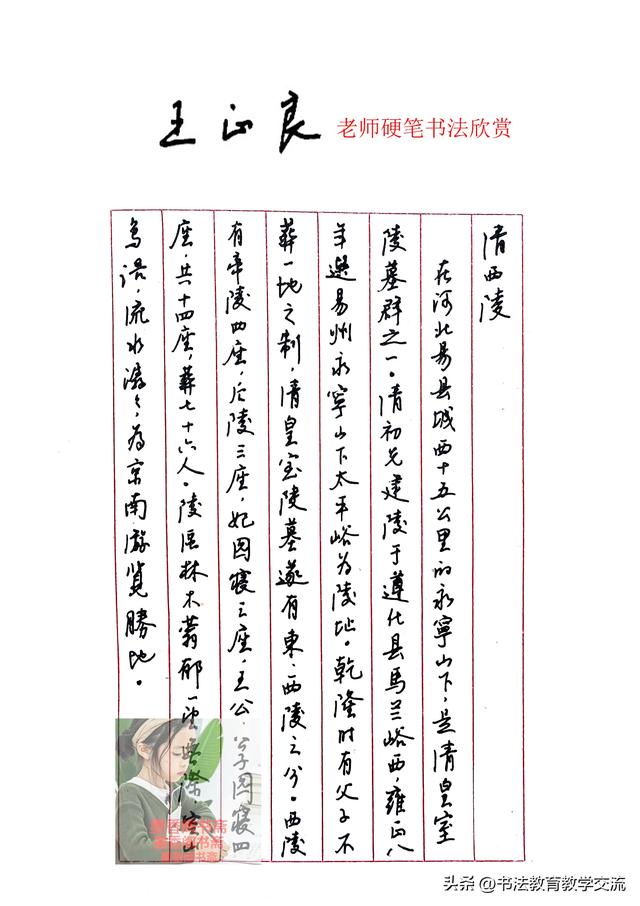 王正良 老师硬笔书法欣赏
清西陵
在河北易县城西十五公里的永寧山下，是清皇室
陵墓群之一。清初先建陵于遵化县馬兰峪西，雍正八
年選易州永寧山下太平峪为陵址。乾隆时有父子不
葬一地之制，清皇室陵墓遂有東、西陵之分。西陵
有帝陵四座，后陵三座，妃园寝三座，王公、公子园寝四
座，共十四座，葬七十六人。陵区林木蓊郁一望無際，空山
鸟语，流水潺々，为京南游览勝地。
头条 @书法教育教学交流